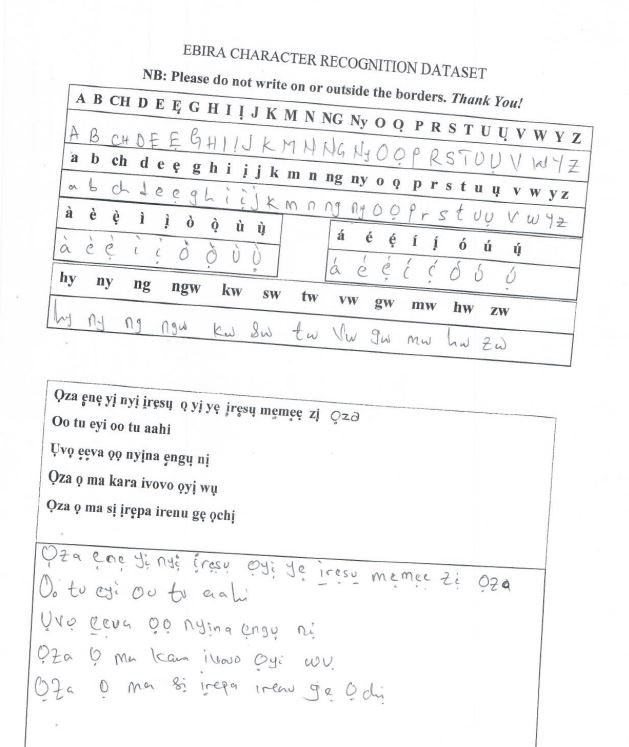 EBIRA CHARACTER RECOGNITION DATASET
NB: Please do not write on or outside the borders. Thank You!
A B CH D E Ẹ G H I Ị J K M N NG Ny O Ọ P R S T U Ụ V W Y Z
A B CH D E Ẹ G H I Ị J K M N NG Ny O Ọ P R S T U Ụ V W Y Z
a b ch d e ẹ g h i ị j k m n ng ny o ọ p r s t u ụ v w y z
a b ch d e ẹ g h i ị j k m n ng ny o ọ p r s t u ụ v w y z
à è ẹ̀ ì ị̀ ò ọ̀ ù ụ̀
à è ẹ̀ ì ị̀ ò ọ̀ ù ụ̀
á é ẹ́ í ị́ ó ú ụ́
á é ẹ́ í ị́ ó ú ụ́
hy ny ng ngw kw sw tw vw gw mw hw zw
hy ny ng ngw kw sw tw vw gw mw hw zw
Ọza ẹnẹ yị nyị ịrẹsụ ọ yị yẹ ịrẹsụ mẹmẹẹ zị ọza
Oo tu eyi oo tu aahi
Ụvọ ẹẹva ọọ nyịna ẹngụ nị
Ọza ọ ma kara ivovo ọyị wụ
Ọza ọ ma sị ịrẹpa irenu gẹ ọchị
Ọza ẹnẹ yị nyị ịrẹsụ ọyị yẹ ịrẹsụ mẹmẹẹ zị ọza
Oo tu eyi oo tu aahi
Ụvọ ẹẹva ọọ nyịna ẹngụ nị
Ọza ọ ma kara ivovo ọyị wụ
Ọza ọ ma sị ịrẹpa irenu gẹ ọchị